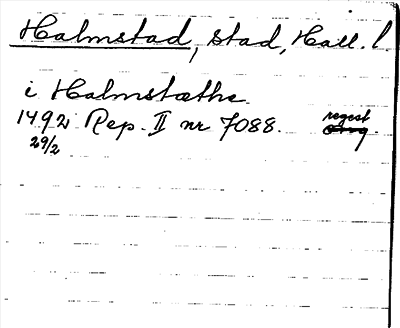 Halmstad, stad, Hall. l
i Halmstæthe
1492 Rep. II nr 7088. regest
29/2